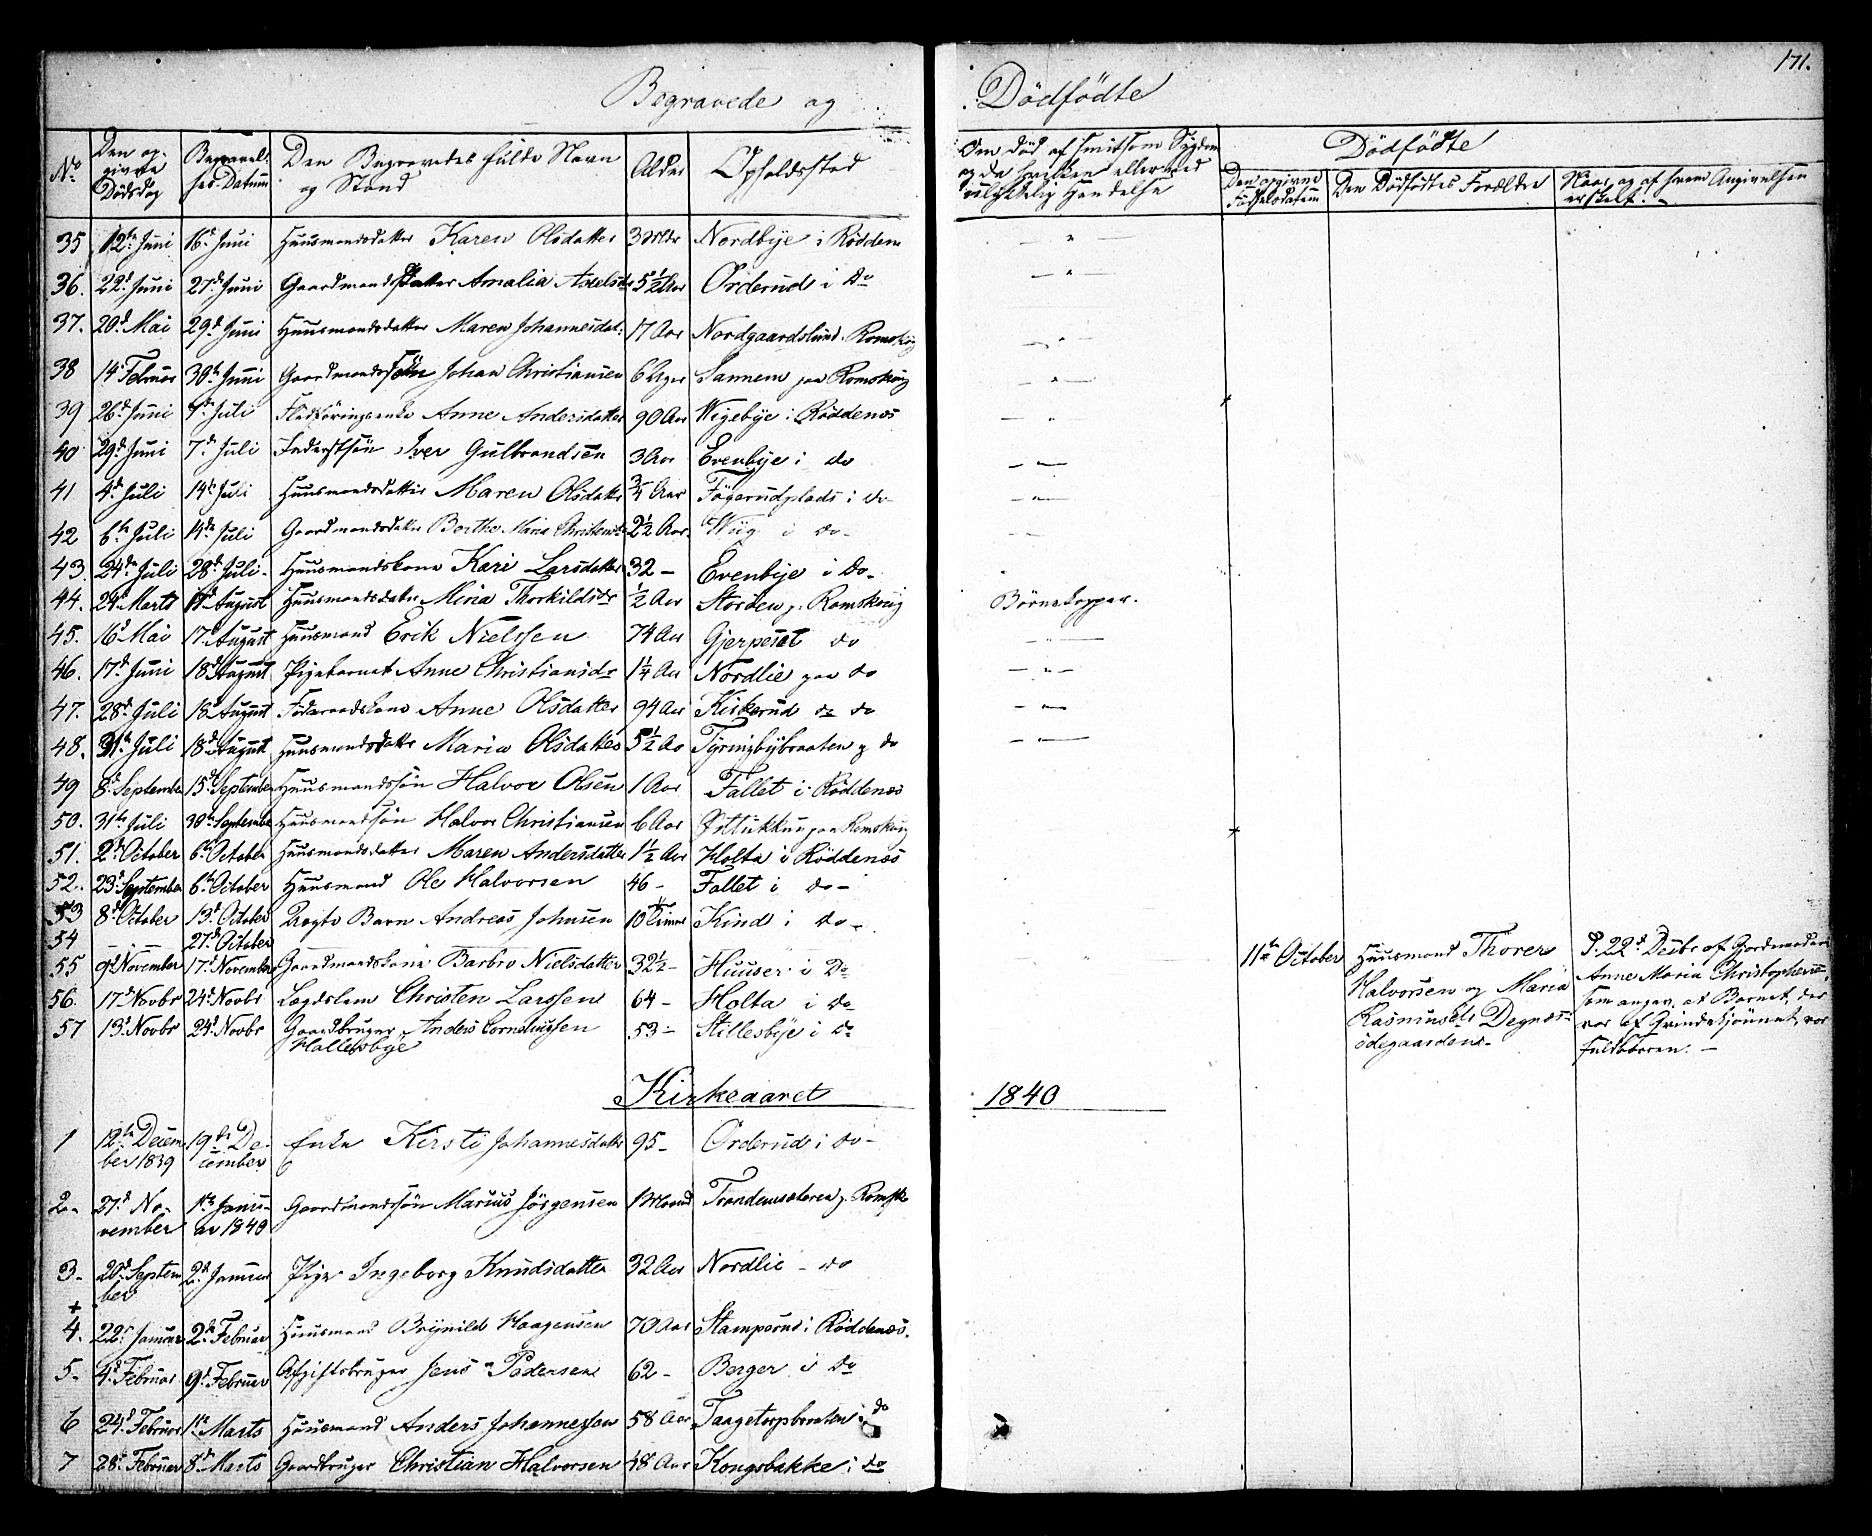 171.
Begravede og Dödfödte
No
Den opgivne Dödsdag
Begravelses-Datum
Den Begravedes fulde Navn og Stand
Alder
Opholdssted
Om död af smitsom Sygdom og da hvilken eller ved ulykkelig Hendelse
Dödfödte
Den opgivne Födselsdatum
Den Dödfödtes Forældre
Naar og af hvem Angivelsen er skeet.
35 12te Juni 16d Juni Huusmandsdatter Karen Olsdatter 3 Nordbye i Röddenes
36. 22d Juni 27d Juni Gaardmandsdatter Amalia Axelsdr 5½ Aar Örderud i do
37. 20d Mai 29d Juni Huusmandsdatter Maren Johannesdat: 17 Aar Nordgaardslund. Romskoug
38 14d Februar 30te Juni Gaardmandssön Johan Christiansen 6 Uger Sannem paa Romskoug
39 26d Juni Juli Anne Andersdatter 90 Aar Wigebye i Röddenæs
40 29d Juni 7d Juli Inderstsön Iver Gulbrandsen 3 Aar Evenbye i do
41 4d Juli 14d Juli Huusmandsdatter Maren Olsdatter ¾ Aar Fögerudplads i do
42 6te Juli 14de Juli Gaardmandsdatter Berthe Maria Christensdr 2½ Aar Wiig i do
43. 24de Juli 28d Juli Huusmandskone Kari Larsdatter 32 - Evenbye i do
44. 24d Marts 17d August Huusmandsdatter Mina Thorkildsdr ½ Aar Storöen p. Romskoug Börnekopper.
45. 16d Mai 17d August Huusmand Erik Nielssen 74 Aar Gjerpesæt do
46. 17d Juni 18d August Pigebarnet Anne Christiansdr 1¼ Aar Nordlie paa do
47. 28d Juli 18d August Föderaadskone Anne Olsdatter 94 Aar Kirkerud do do
48. 31te Juli 18d August Huusmandsdatter Maria Olsdatter 5½ Aar Tyringbybraaten p do
49 8d September 15d September Huusmandssön Halvor Olsen 1 Aar Fallet i Röddenæs
50. 31te Juli 30te September Huusmandssön Halvor Christiansen 6 Aar paa Romskoug
51. 2d October 6te October Huusmandsdatter Maren Andersdatter 1½ Aar Holta i Röddenæs
52. 23d September 6te October Huusmand Ole Halvorsen 46 - Fallet i do -
53 8d October 13d October Barn Andreas Johnsen 10 Timer Kind i do -
54 27d October 11te October Huusmand Thorer Halvorsen og Maria Rasmusdtr Degnæsödegaardene - 22d Decbr af Jordemoderen Anne Maria Christophersd. som angav, at Barnet, der var af Qvindekjönnet, var fuldbaaren. -
55 9d November 17d November Gaardmandskone Barbro Nielsdatter 32½ - Huuser i Do
56. 17d Novbr 24d Novbr Lægdslem Christen Larssen 64 - Holta i do
57 13d Novbr 24d Novbr Gaardbruger Anders Corneliussen Hallesbye 53 - Stillesbye i do
Kirkeaaret 1840
1 12te December 1839 19de December Enke Kirsti Johannesdatter 95 - Örderud i do -
2 - 27d November 1te Januar 1840 Gaardmandssön Marius Jörgensen 1 Maaned Trandemsæteren p. Romsk
3 - 20d September 2d Januar Pige Ingeborg Knudsdatter 32 Aar Nordlie - do
+
4. 22d Januar 2d Februar Huusmand Brynild Haagensen 70 Aar i Röddenæs.
5 - 4d Februar 9d Februar Afgiftsbruger Jens Pedersen 62 - Berger i do
6 24d Februar 1te Marts Huusmand Anders Johannessen 58 Aar Taagetorpbraaten i do
7 28d Februar 8d Marts Gaardbruger Christian Halvorsen 48 Aar Kongsbakke i do